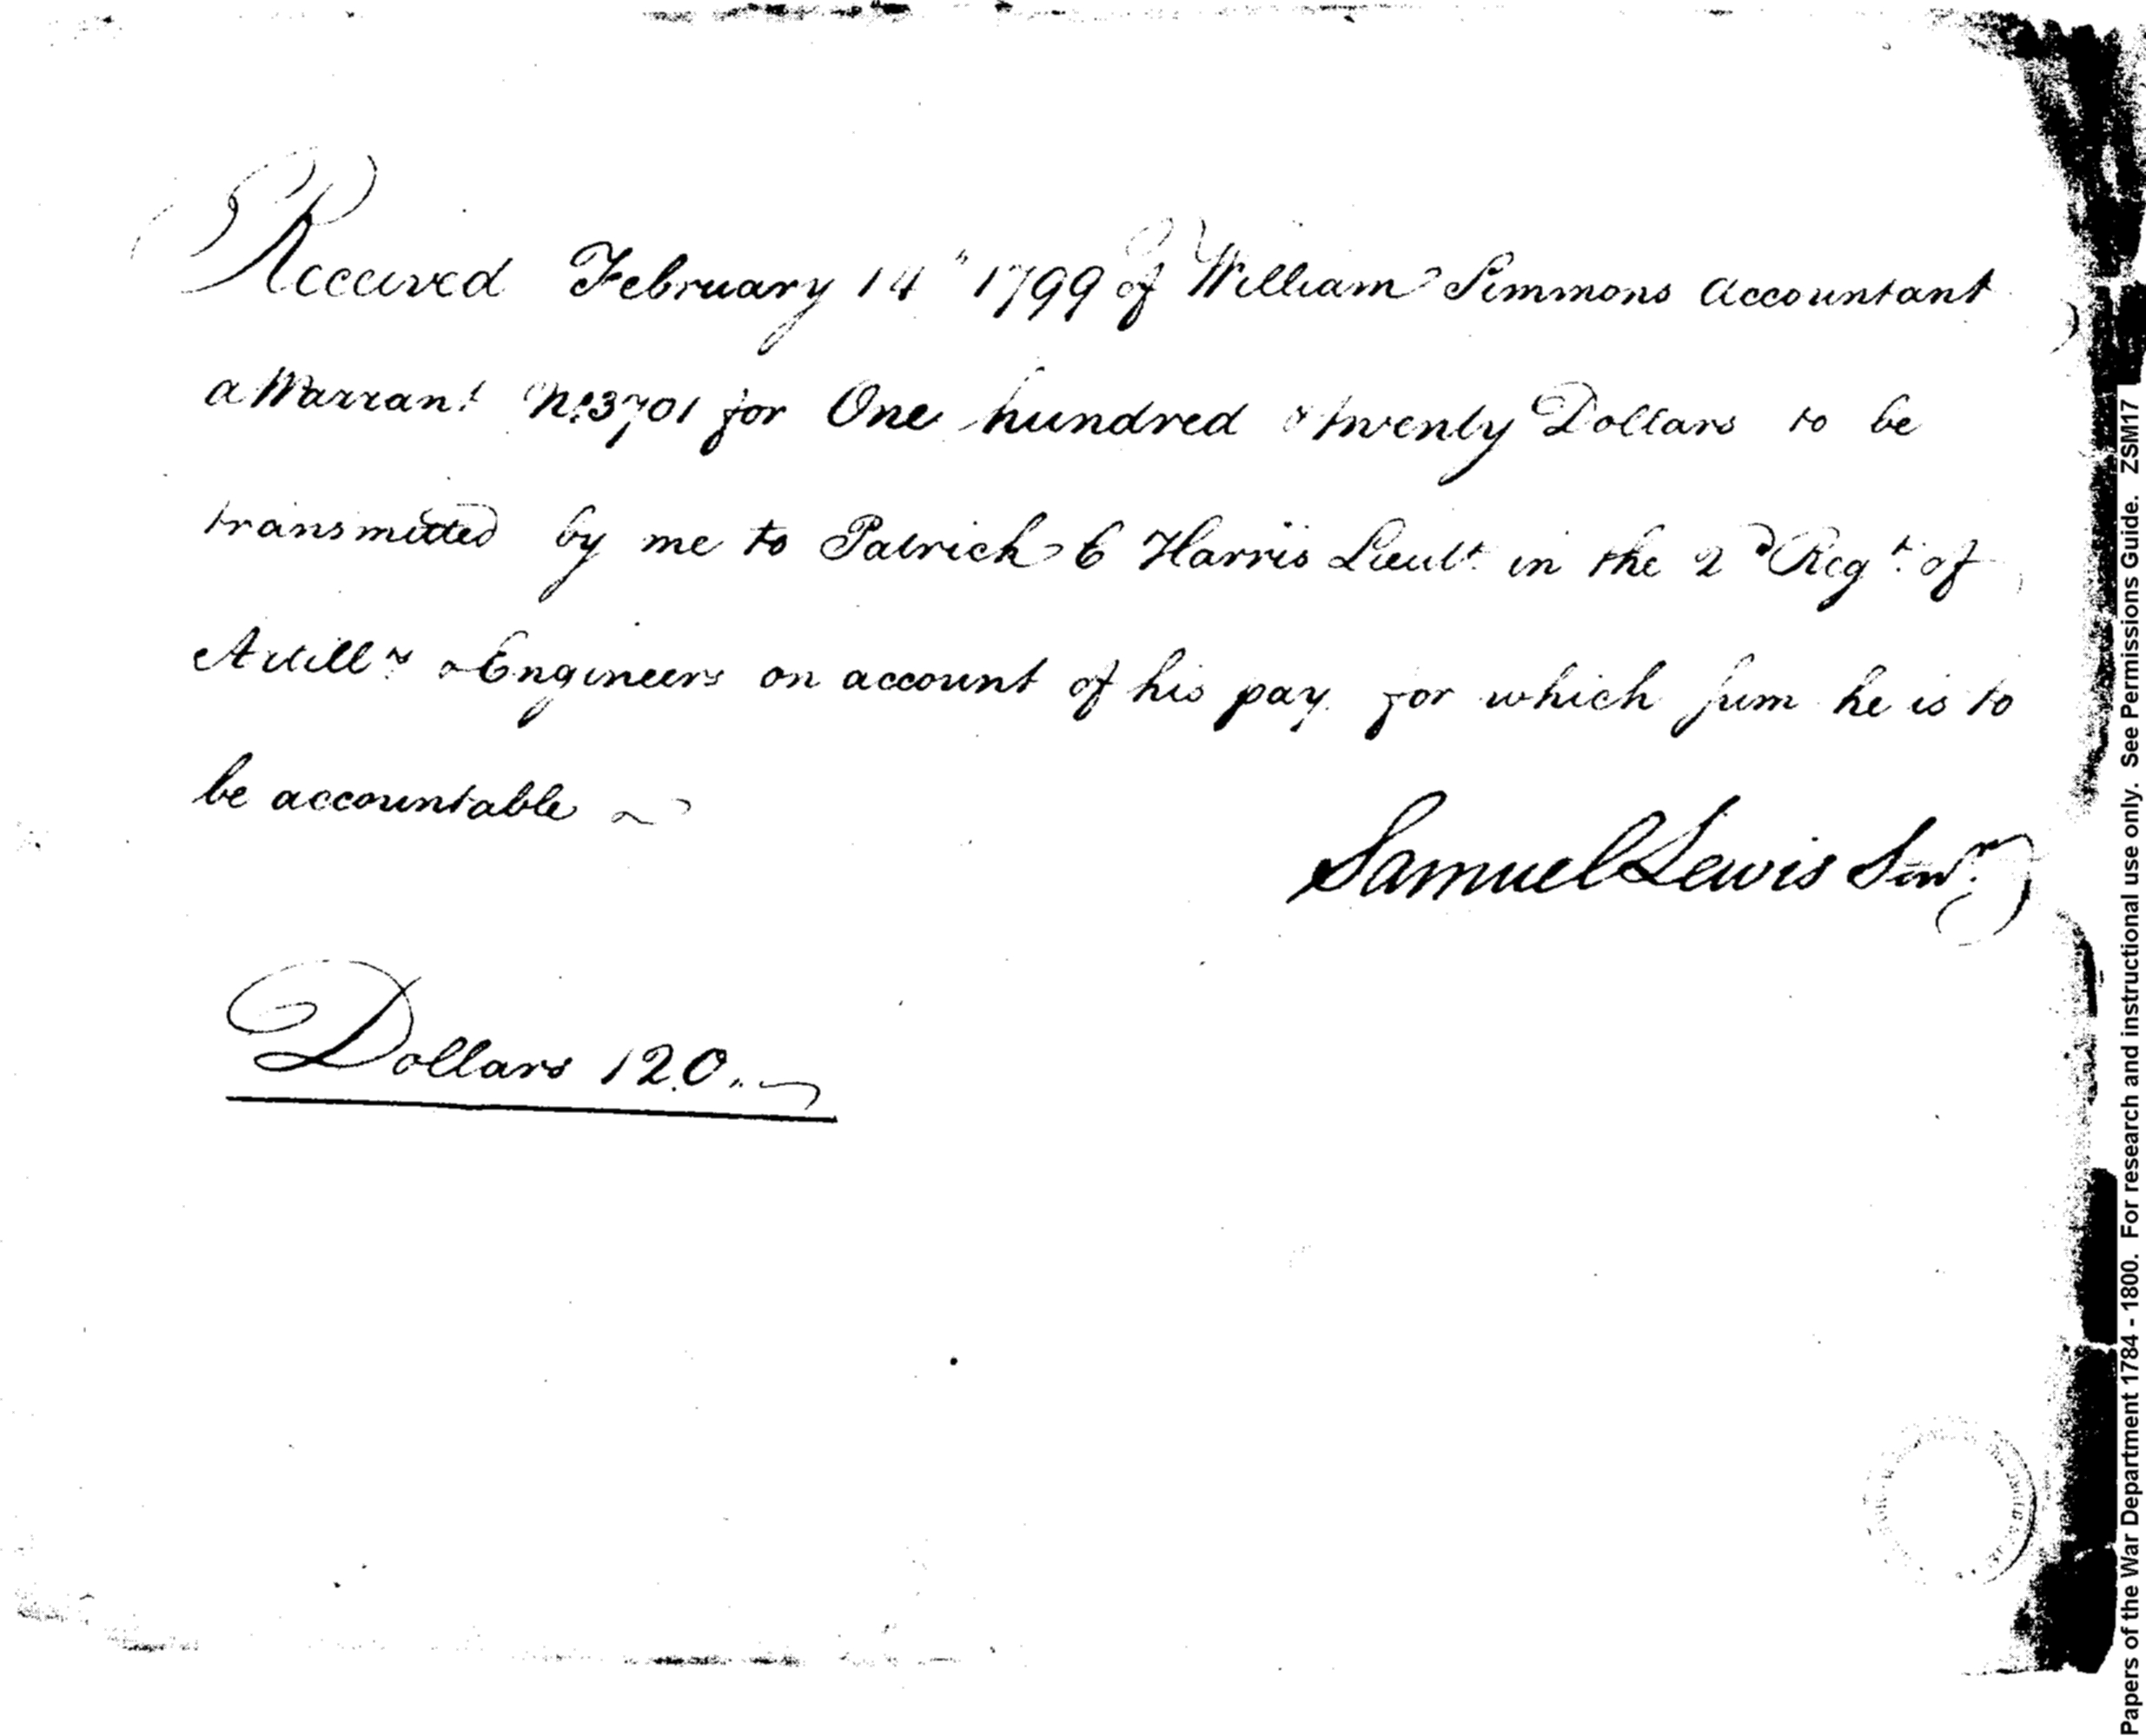 Received February 14" 1799 of William Simmons Accountant
a Warrant No. 3701 for One hundred & twenty Dollars to be
transmitted by me to Patrick C Harris Lieut. in the 2d Regt. of
Artilly. & Engineers on account of his pay for which sum he is to
be accountable ~
Samuel Lewis Senr.
Dollars 120..
Papers of the War Department 1784 - 1800. For research and instructional use only. See Permissions Guide. ZSM17